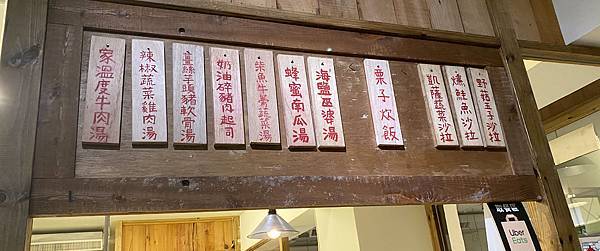 家溫度牛肉湯
辣椒蔬菜雞肉湯
薑絲芋頭豬軟骨湯
奶油碎豬肉起司
柴魚牛蒡蔬菜湯
蜂蜜南瓜湯
海鹽巫婆湯
栗子炊飯
凱薩蔬菜沙拉
燻鮭魚沙拉
野菇玉子沙拉
取餐區
Uber
Eats